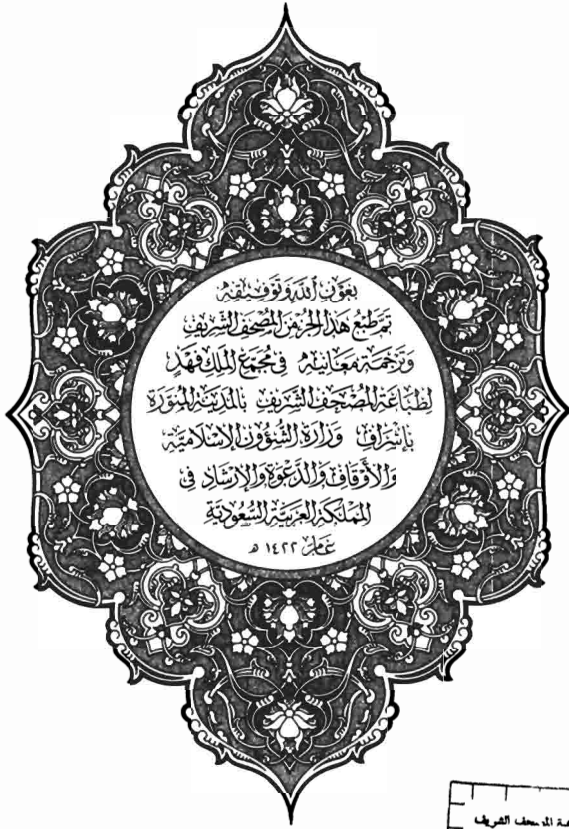 بعون الله وتوفيقه
تم طبع هذا الجزء من المصحف الشريف
وترجمة معانيه في مجمع الملك فهد
لطباعة المصحف الشريف بالمدينة المنورة
بإشراف وزارة الشؤون الإسلامية
والأوقاف والدعوة والإرشاد في
المملكة العربية السعودية
عام ١٤٢٢ هـ
المصحف الشريف